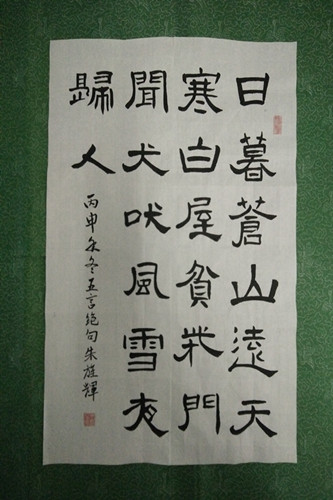 日暮蒼山遠天
寒白屋貧柴門
聞犬吠風雪夜
歸人
丙申年冬五言絶句朱旌輝